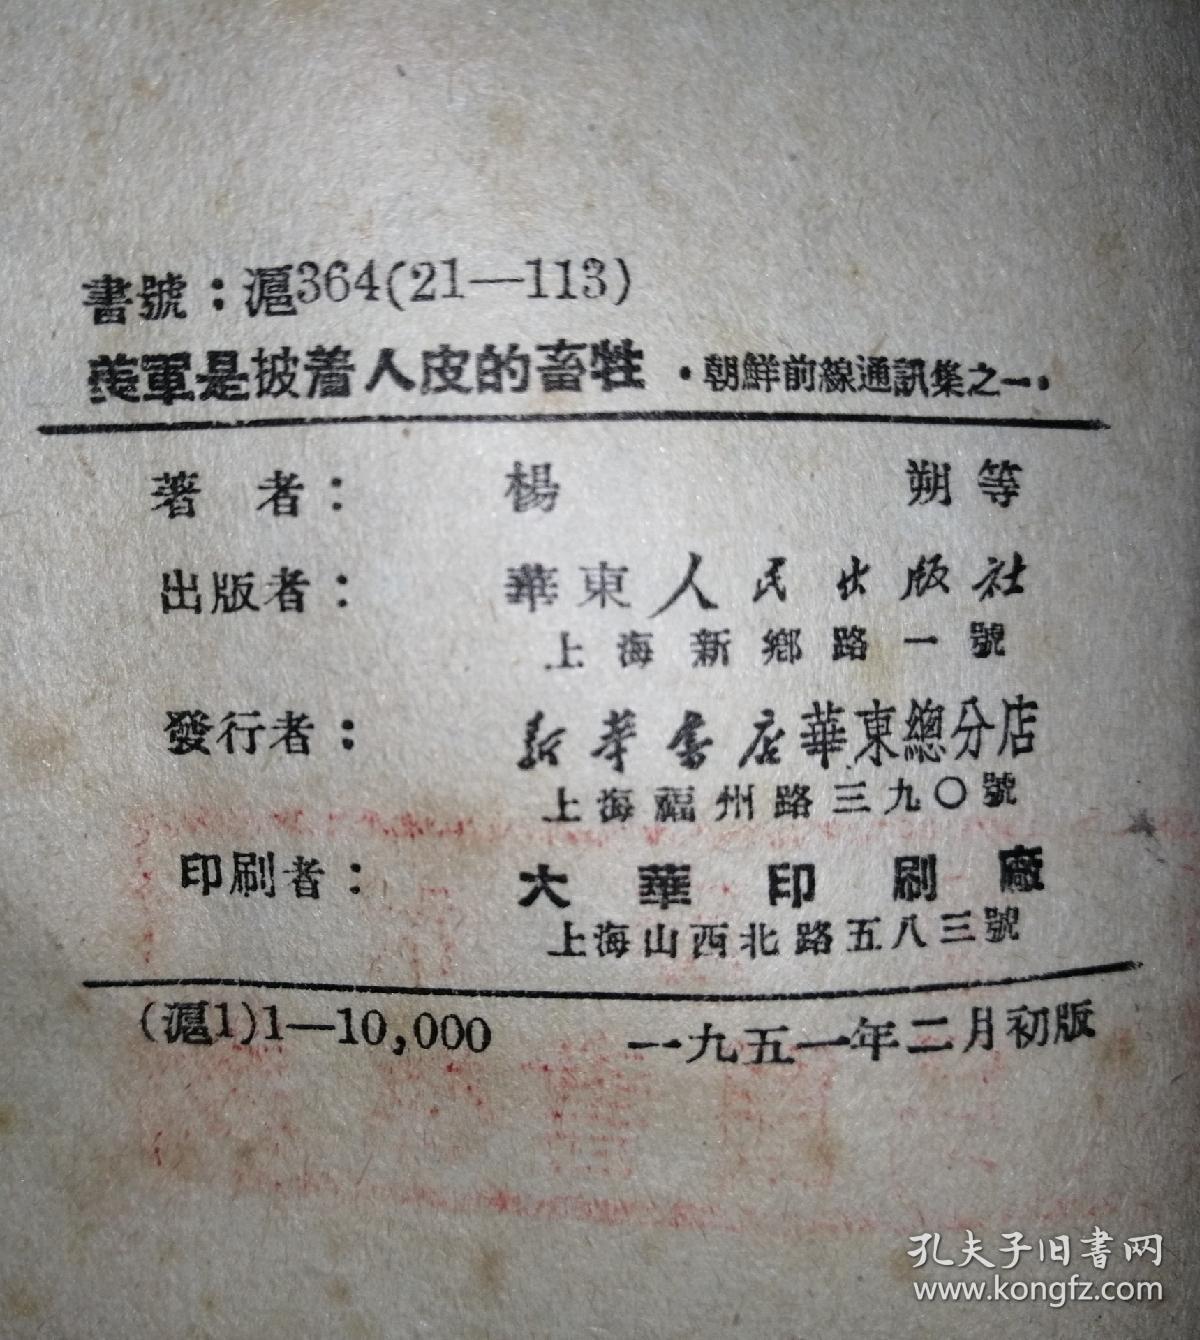 書號：滬364(21—113)
美軍是披着人皮的畜牲 ·朝鮮前線通訊集之一·
著者： 楊朔等
出版者： 華東人民出版社
上海新鄉路一號
發行者： 新華書店華東總分店
上海福州路三九〇號
印刷者： 大華印刷廠
上海山西北路五八三號
(滬1)1—10,000 一九五一年二月初版
孔夫子旧書网
www.kongfz.com